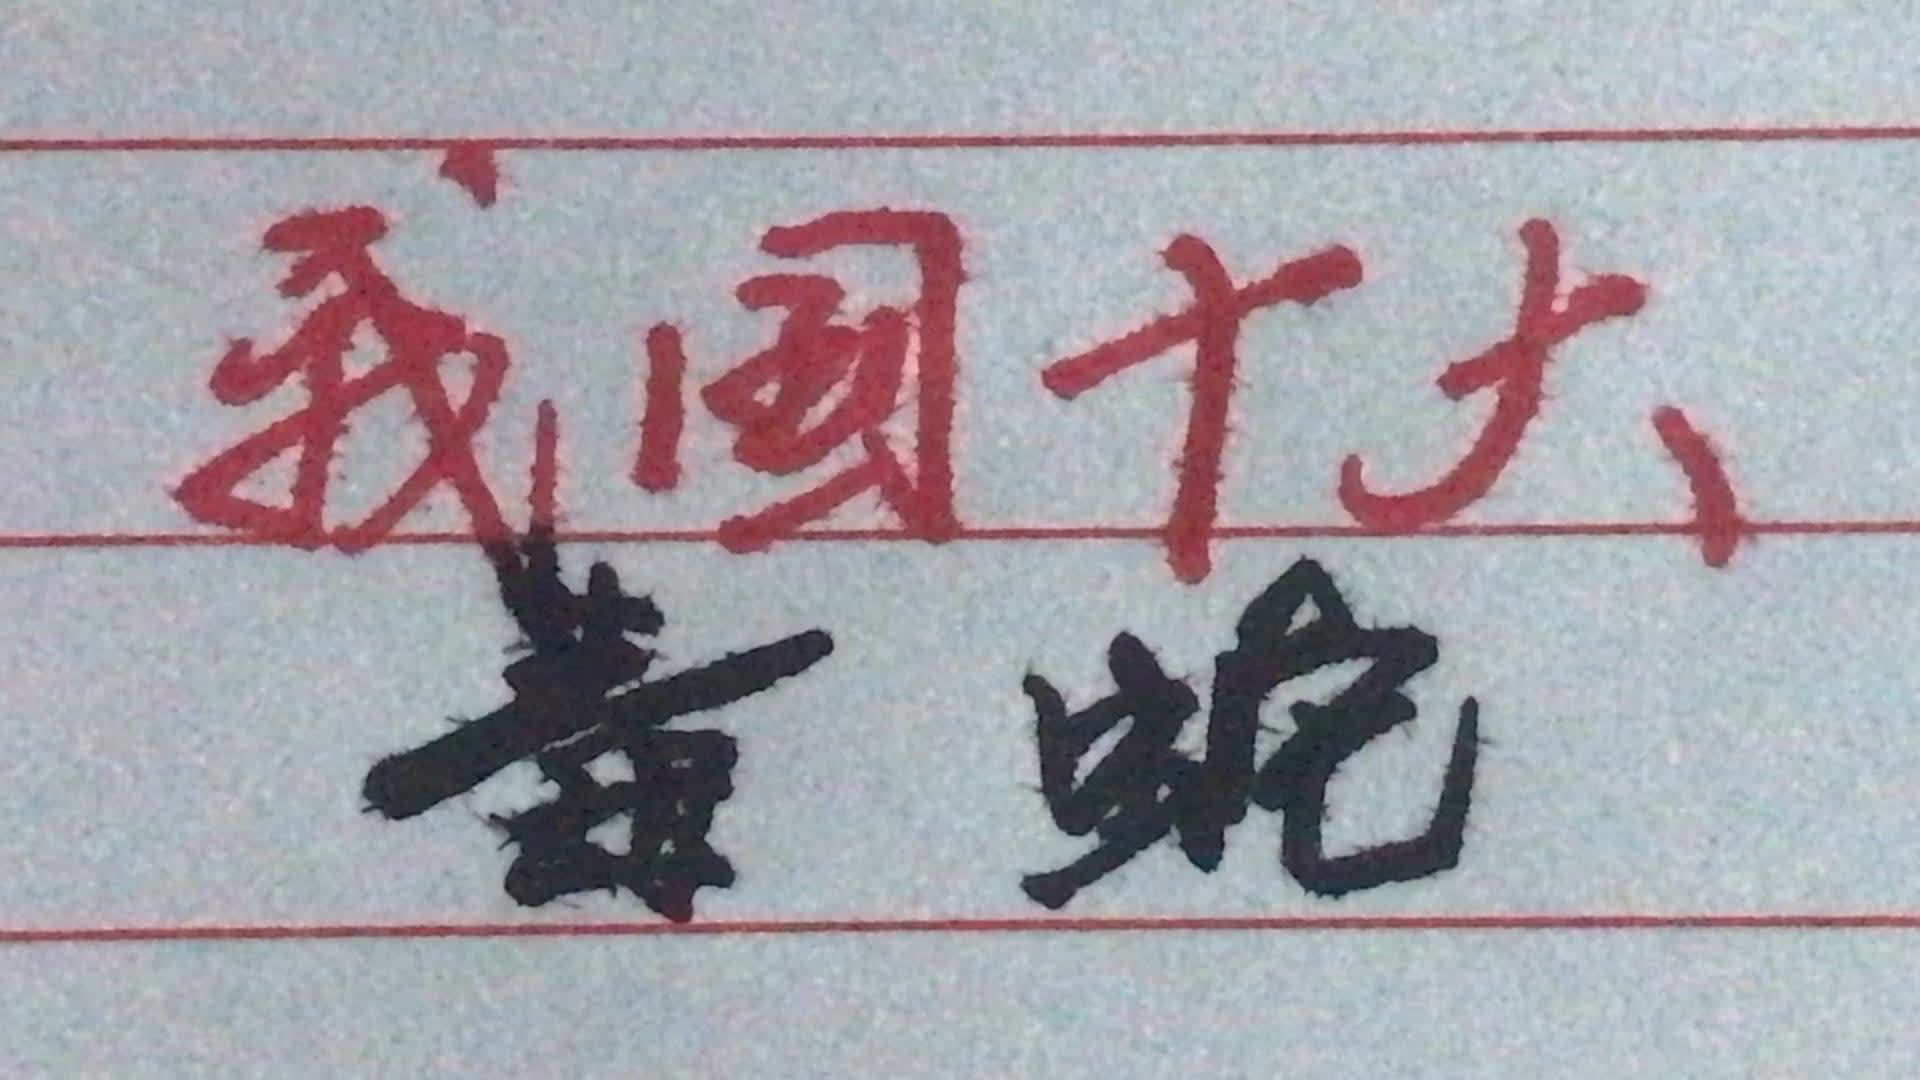 我国十大
毒蛇